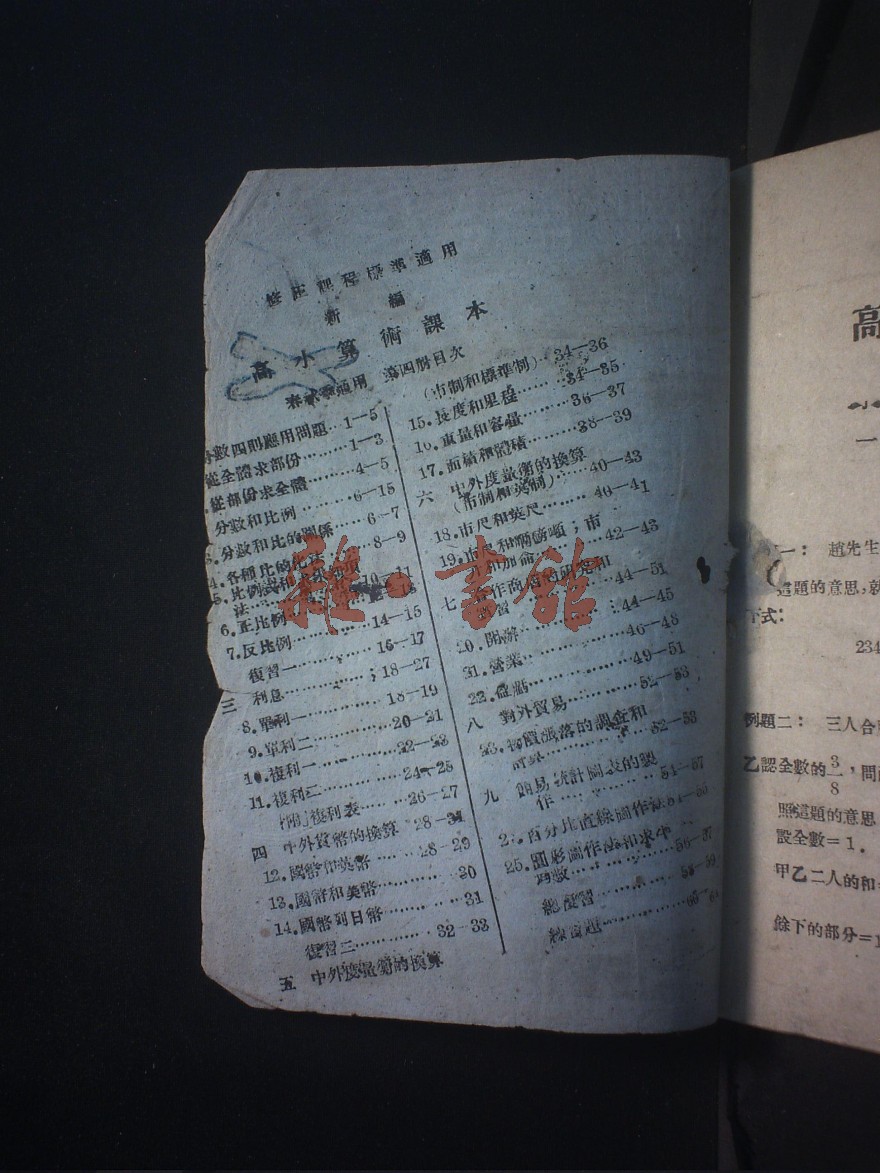 修正課程標準適用
新 編
高小算術課本
春秋季通用 第四冊目次
分數四則應用問題‥1—5
從全體求部份………1—3
從部份求全體………4—5
分數和比例…………6—15
3.分數和比的關係……6—7
4.各種比的化法………8—9
5.比例式和
法……10—11
6.正比例
7.反比例……………14—15
復習一……………16—17
三 利息……………18—27
8.單利一……………18—19
9.單利二……………20—21
10.複利一……………22—23
11.複利二……………24—25
〔附〕複利表………26—27
四 中外貨幣的換算 28—31
12.國幣和英幣………28—29
13.國幣和美幣…………30
14.國幣和日幣…………31
復習二……………32—33
五 中外度量衡的換算
(市制和標準制)‥34—36
15.長度和里程………34—35
16.重量和容量………36—37
17.面積和體積………38—39
六 中外度量衡的換算
(市制和英制)‥40—43
18.市尺和英尺………40—41
19.市斤和磅噸;市
和加侖………42—43
七 合作商店的研究和
習……44—51
20.開辦……………44—45
21.營業……………46—48
22.盈虧……………49—51
八 對外貿易…………52—53
23.物價漲落的調查和
計算……………52—53
九 簡易統計圖表的製
作……………54—57
24.百分比直線圖作法
25.圓形圖作法和求平
均數……………56—57
總復習……………58—59
練習題
高
一
一: 趙先生
這題的意思,就
下式:
234
例題二: 三人合
乙認全數的3/8,問
照這題的意思
設全數=1.
甲乙二人的和=
餘下的部分=1
雜·書館